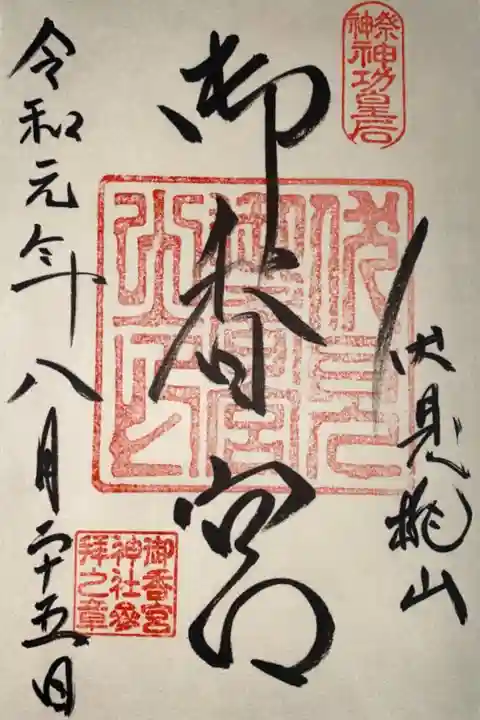 祭神
神功皇后
伏見桃山
御香宮
御香宮
神社参
拝之章
令和元年八月二十五日